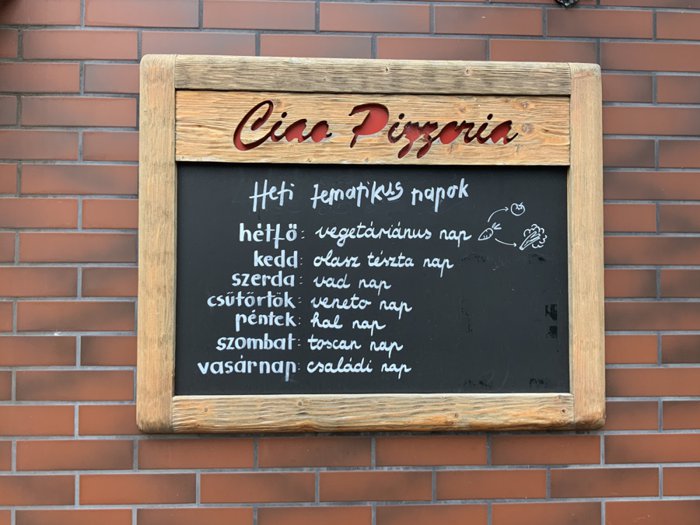 Ciao Pizzeria
Heti tematikus napok
hétfő: vegetáriánus nap
kedd: olasz tészta nap
szerda: vad nap
csütörtök: veneto nap
péntek: hal nap
szombat: toscan nap
vasárnap: családi nap